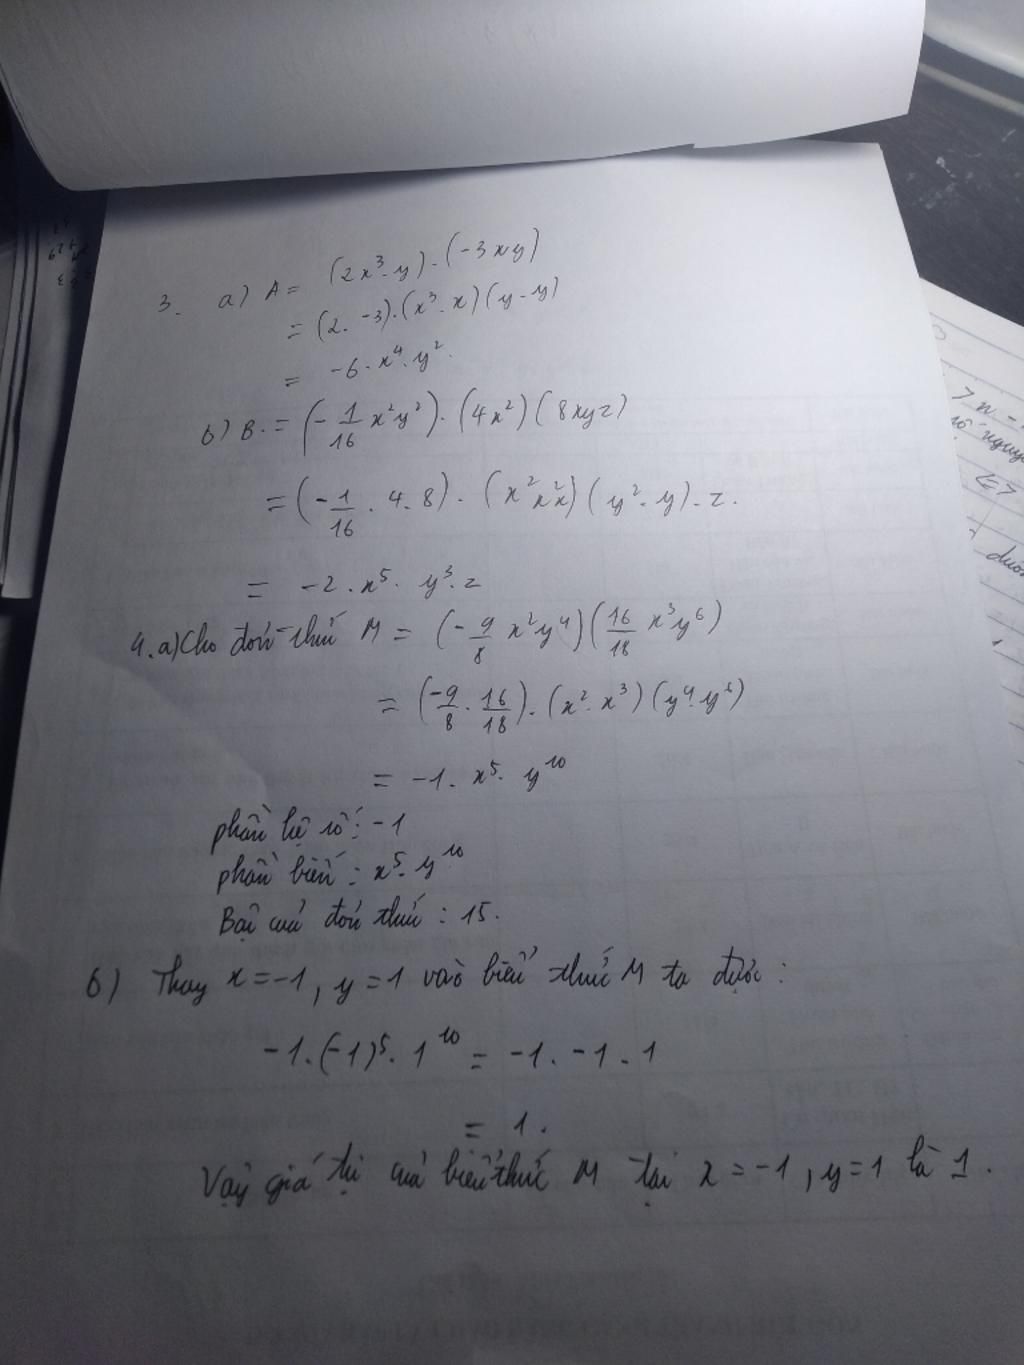 3. a) A = (2x³.y).(-3xy)
= (2.-3).(x³.x)(y.y)
= -6.x⁴.y².
b) B = (-1/16 x²y²).(4x²)(8xyz)
= (-1/16 . 4.8).(x²x²x)(y².y).z.
= -2.x⁵.y³.z
4.a) Cho đơn thức M = (-9/8 x²y⁴)(16/18 x³y⁶)
= (-9/8 . 16/18).(x².x³)(y⁴.y⁶)
= -1.x⁵.y¹⁰
phần hệ số: -1
phần biến: x⁵.y¹⁰
Bậc của đơn thức: 15.
b) Thay x = -1, y = 1 vào biểu thức M ta được:
-1.(-1)⁵.1¹⁰ = -1.-1.1
= 1.
Vậy giá trị của biểu thức M tại x = -1, y = 1 là 1.